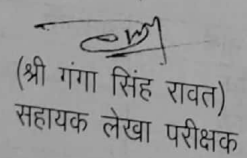 (श्री गंगा सिंह रावत)
सहायक लेखा परीक्षक